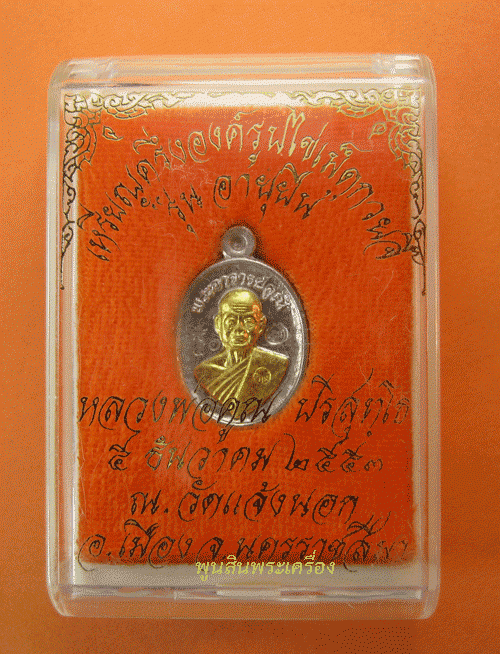 เหรียญครึ่งองค์รูปไข่เม็ดกวยจี๊
รุ่น อายุยืน
พระอาจารย์คูณ
หลวงพ่อคูณ ปริสุทฺโธ
๕ ธันวาคม ๒๕๕๓
ณ. วัดแจ้งนอก
อ.เมือง จ.นครราชสีมา
พูนสินพระเครื่อง